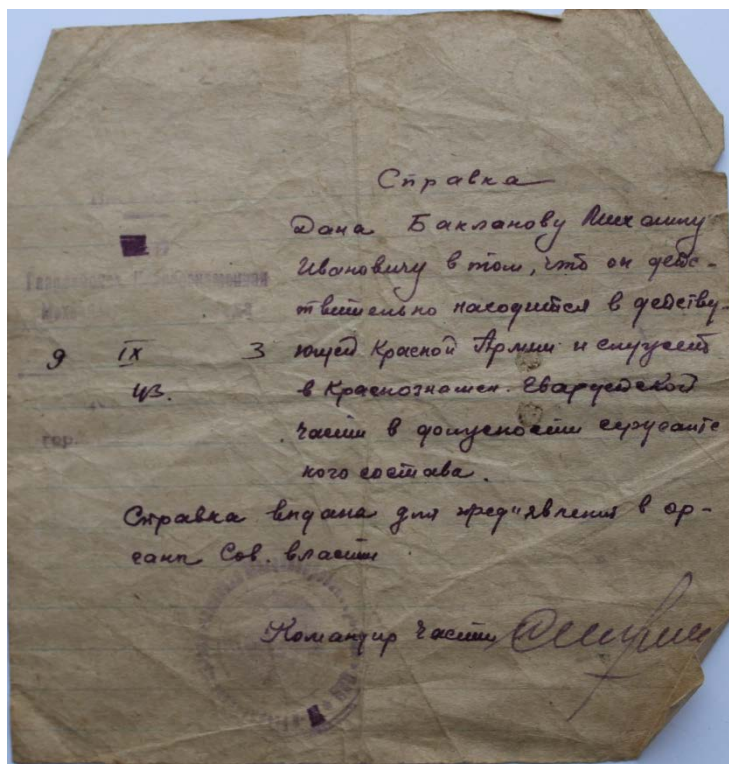 Справка
Дана Бакланову Михаилу
Ивановичу в том, что он дейс-
твительно находится в действу-
9 IX 3 ющей Красной Армии и служит
43. в Краснознамен. Гвардейской
гор. части в должности сержантс
кого состава.
Справка выдана для пред"явления в ор-
ганы Сов. власти
Командир части